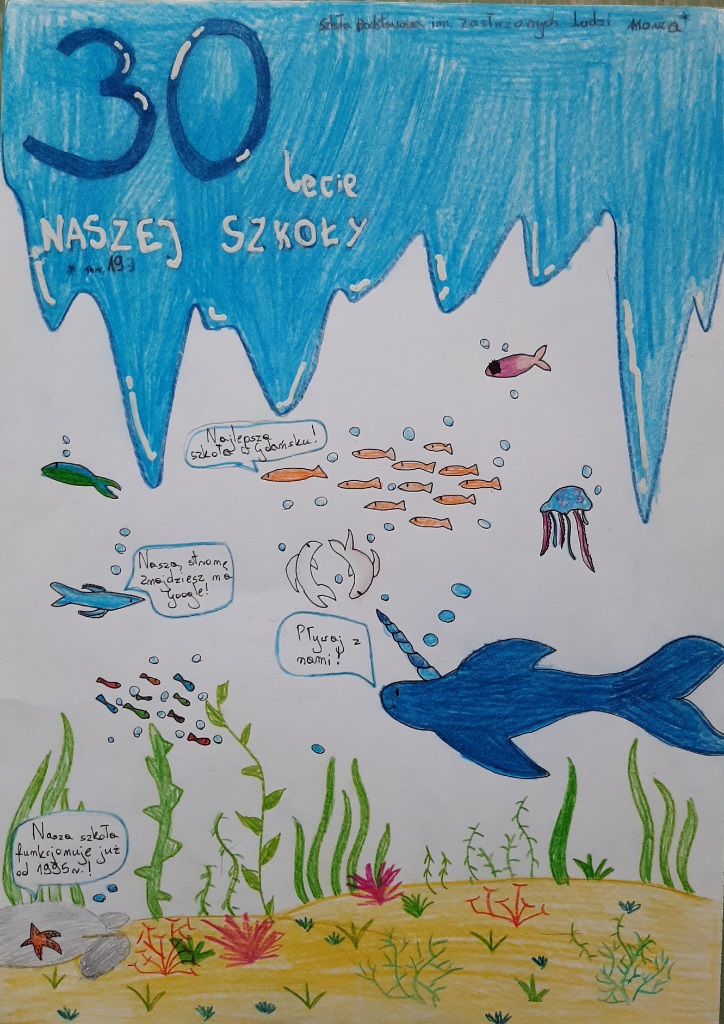 Szkoła Podstawowa im. Zasłużonych Ludzi Morza
30
lecie
NASZEJ SZKOŁY
* nr. 19 :)
Najlepsza
szkoła w Gdańsku!
Naszą stronę
znajdziesz na
Google!
Pływaj z
nami!
Nasza szkoła
funkcjonuje już
od 1995 r.!